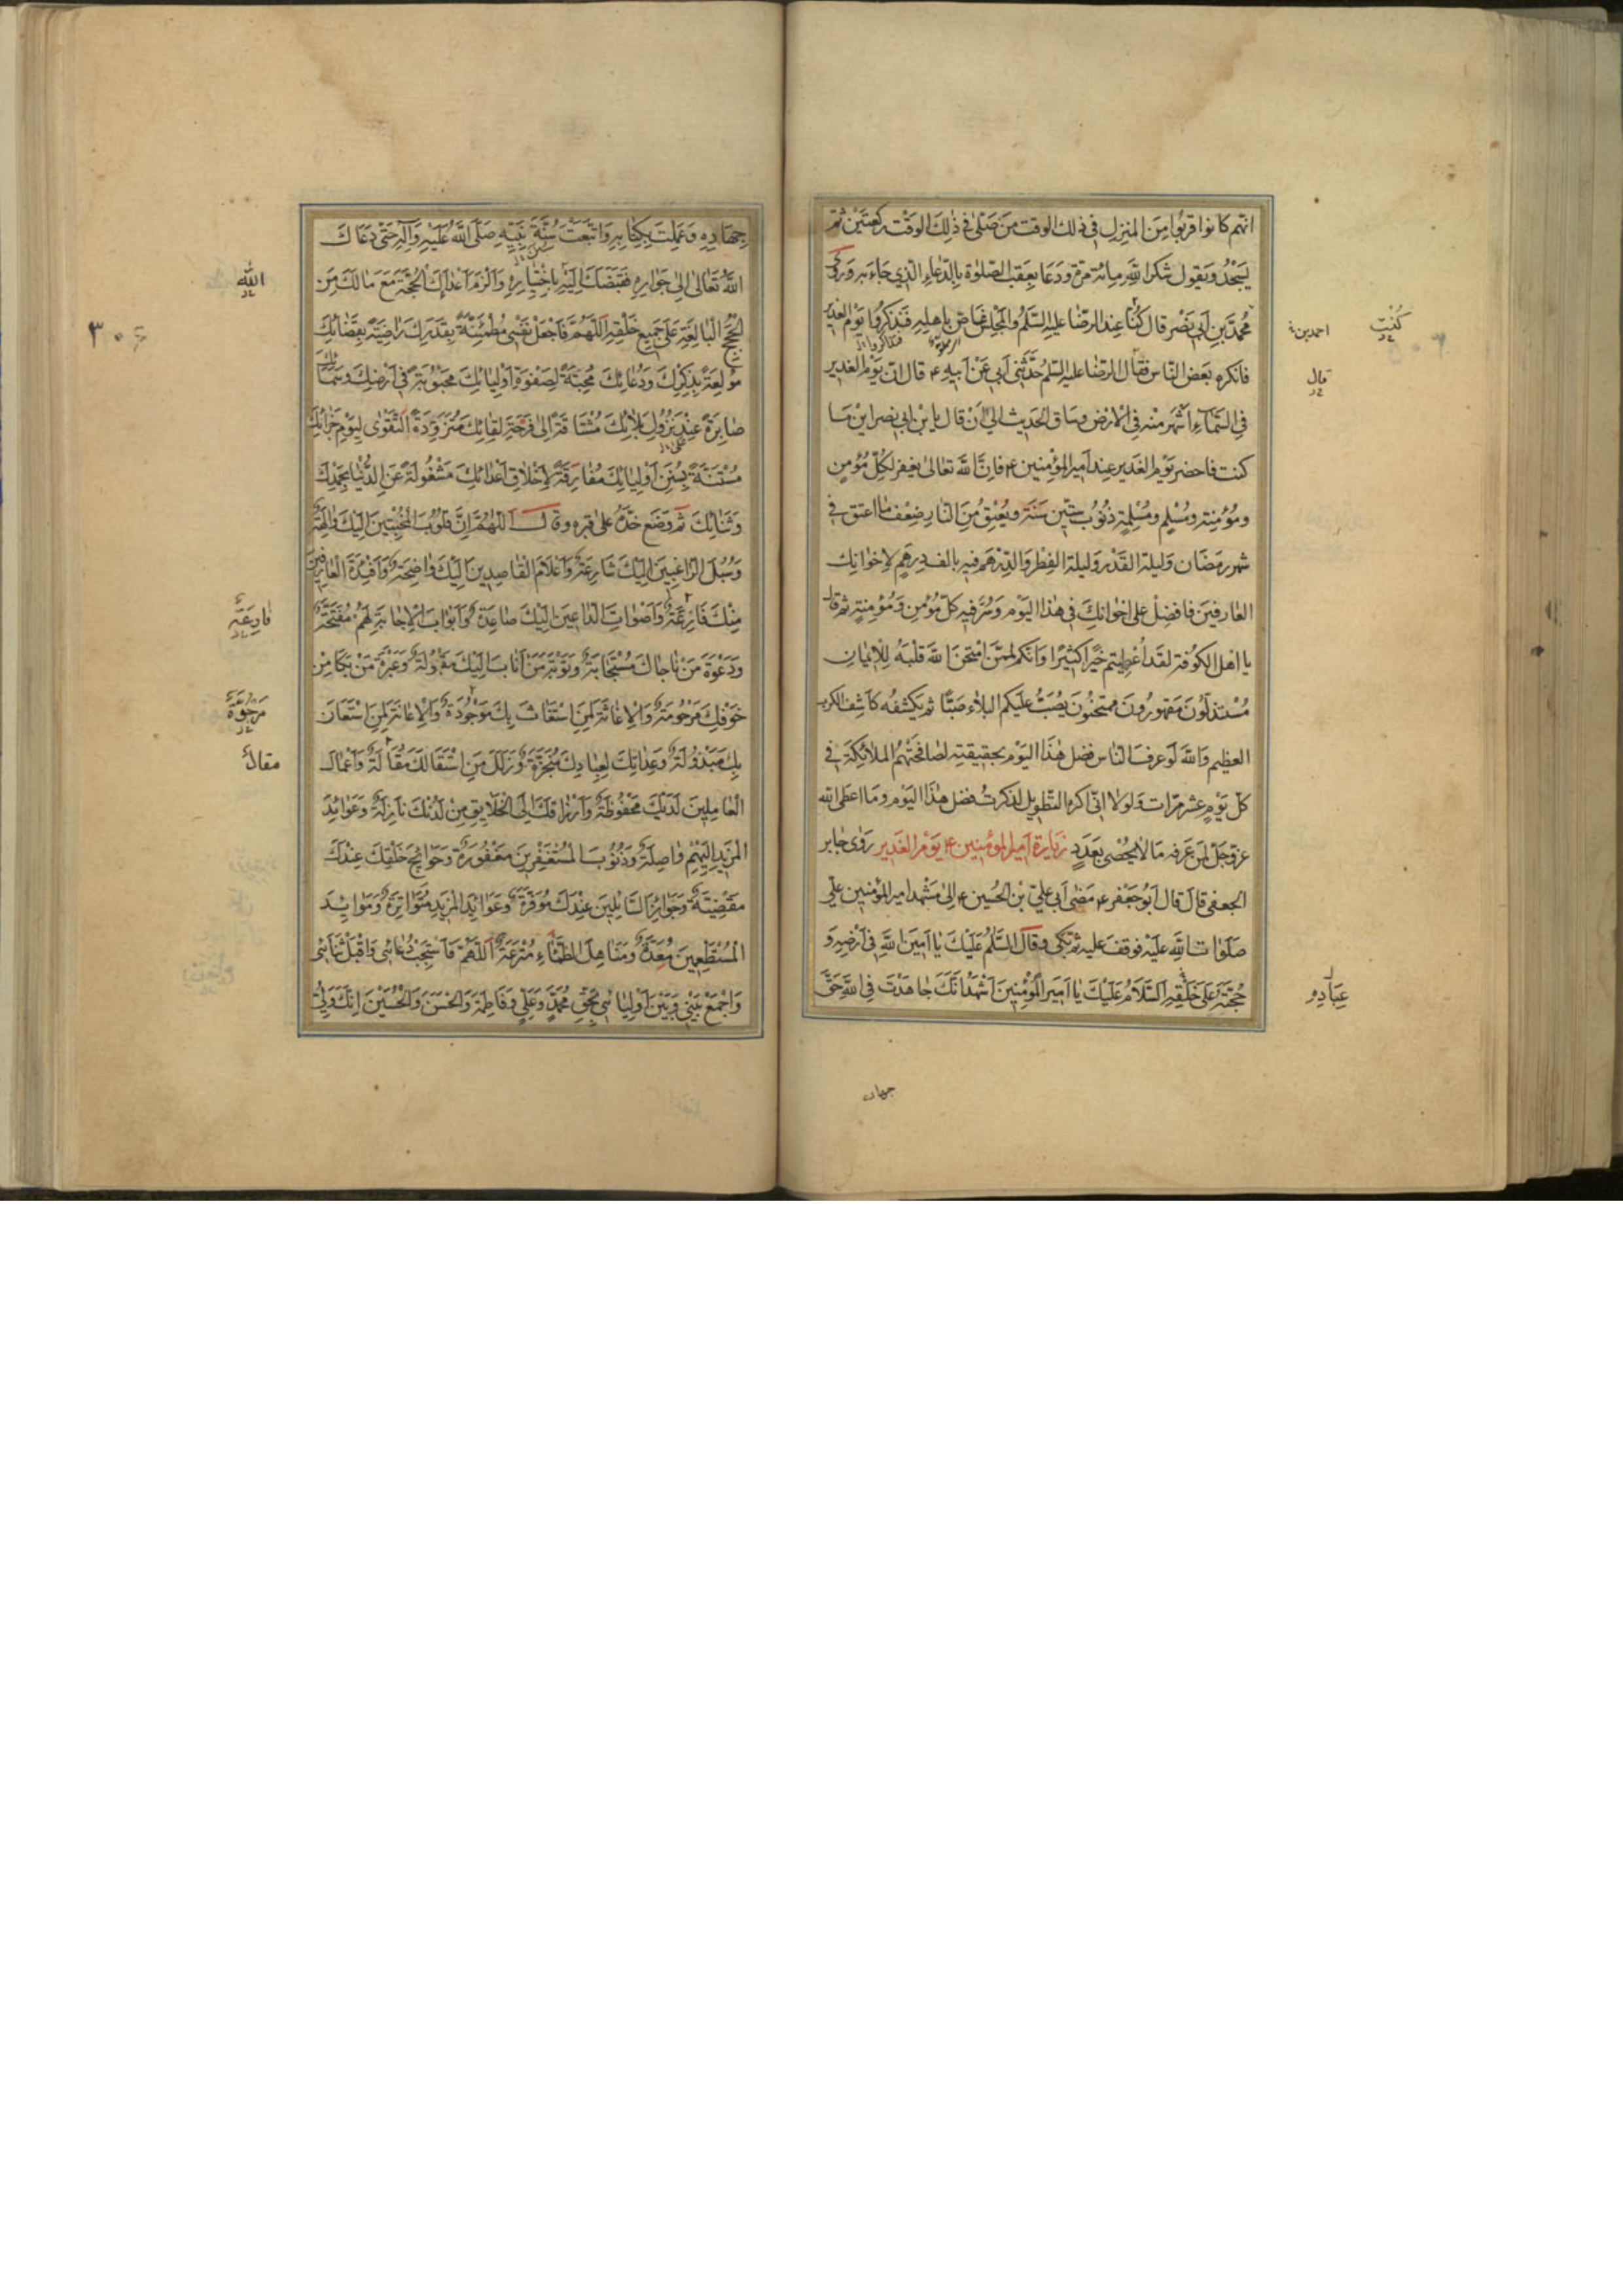 انهم كانوا قريبا من المنزل في ذلك الوقت من صلى في ذلك الوقت ركعتين ثم
يسجد ويقول شكرا لله مائة مرة ودعا بعقب الصلوة بالدعاء الذي جاء به وروى
محمد بن أبي نصر قال كنا عند الرضا عليه السلم والمجلس غاص باهله فتذكروا يوم الغدير
فانكره بعض الناس فقال الرضا عليه السلم حدثني أبي عن أبيه ع قال ان يوم الغدير
في السماء اشهر منه في الارض وساق الحديث الى أن قال يا بن ابي نصر اين ما
كنت فاحضر يوم الغدير عند امير المؤمنين ع فان الله تعالى يغفر لكل مؤمن
ومؤمنة ومسلم ومسلمة ذنوب ستين سنة ويعتق من النار ضعف ما اعتق في
شهر رمضان وليلة القدر وليلة الفطر والدرهم فيه بالف درهم لاخوانك
العارفين فافضل على اخوانك في هذا اليوم وسر فيه كل مؤمن ومؤمنة ثم قال
يا اهل الكوفة لقد أعطيتم خيرا كثيرا وانكم لممن امتحن الله قلبه للايمان
مستذلون مقهورون ممتحنون يصب عليكم البلاء صبا ثم يكشفه كاشف الكرب
العظيم والله لو عرف الناس فضل هذا اليوم بحقيقته لصافحتهم الملائكة في
كل يوم عشر مرات ولولا اني اكره التطويل لذكرت فضل هذا اليوم وما اعطى الله
عز وجل من عرفه ما لا يحصى بعدد زيارة امير المؤمنين ع يوم الغدير روى جابر
الجعفي قال قال ابو جعفر ع مضى أبي علي بن الحسين ع الى مشهد امير المؤمنين علي
صلوات الله عليه فوقف عليه ثم بكى وقال السلم عليك يا امين الله في ارضه و
حجته على خلقه السلام عليك يا امير المؤمنين اشهد انك جاهدت في الله حق
كنت
احمد بن
قال
عباده
جهاده
جهاده وعملت بكتابه واتبعت سنة نبيه صلى الله عليه وآله حتى دعاك
الله تعالى الى جواره فقبضك اليه باختياره والزم اعداءك الحجة مع مالك من
الحجج البالغة على جميع خلقه اللهم فاجعل نفسي مطمئنة بقدرك راضية بقضائك
مولعة بذكرك ودعائك محبة لصفوة اوليائك محبوبة في ارضك وسمائك
صابرة عند نزول بلائك مشتاقة الى فرحة لقائك متزودة التقوى ليوم جزائك
مستنة بسنن اوليائك مفارقة لاخلاق اعدائك مشغولة عن الدنيا بحمدك
وثنائك ثم وضع خده على قبره وقال اللهم ان قلوب المخبتين اليك والهة
وسبل الراغبين اليك شارعة واعلام القاصدين اليك واضحة وافئدة العارفين
منك فازعة واصوات الداعين اليك صاعدة وابواب الاجابة لهم مفتحة
ودعوة من ناجاك مستجابة وتوبة من اناب اليك مقبولة وعبرة من بكا من
خوفك مرحومة والاغاثة لمن استغاث بك موجودة والاعانة لمن استعان
بك مبذولة وعداتك لعبادك منجزة وزلل من استقالك مقالة واعمال
العاملين لديك محفوظة وارزاقك الى الخلايق من لدنك نازلة وعوائد
المزيد اليهم واصلة وذنوب المستغفرين مغفورة وحوائج خلقك عندك
مقضية وجوائز السائلين عندك موفرة وعوائد المزيد متواترة وموائد
المستطعمين معدة ومناهل الظماء مترعة اللهم فاستجب دعائي واقبل ثنائي
واجمع بيني وبين اوليائي بحق محمد وعلي وفاطمة والحسن والحسين انك ولي
الله
٣٠٦
مقالة